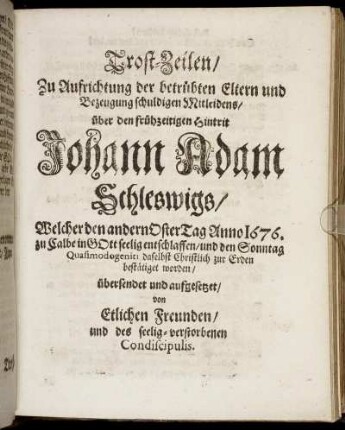 Trost-Zeilen/
Zu Aufrichtung der betrübten Eltern und
Bezeugung schuldigen Mitleidens/
über den frühzeitigen Hintrit
Johann Adam
Schleswigs/
Welcher den andern Oster Tag Anno 1676.
zu Calbe in GOtt seelig entschlaffen/und den Sonntag
Quasimodogeniti daselbst Christlich zur Erden
bestätiget worden/
übersendet und aufgesetzet/
von
Etlichen Freunden/
und des seelig-verstorbenen
Condiscipulis.